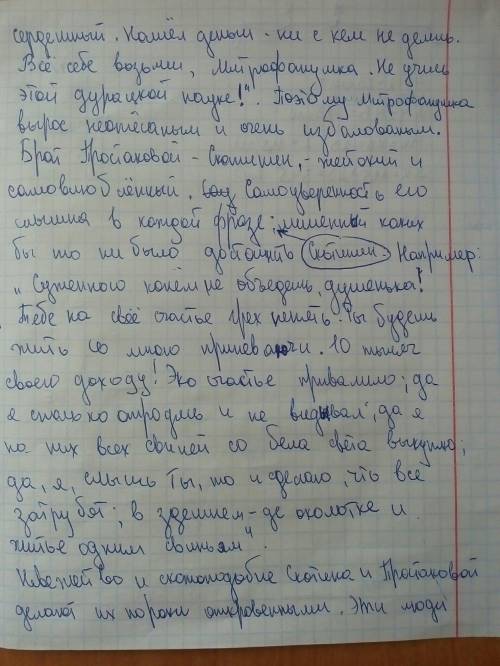 сердешный. Нашёл деньги - ни с кем не делись.
Всё себе возьми, Митрофанушка. Не учись
этой дурацкой науке!". Поэтому Митрофанушка
вырос неотёсаным и очень избалованым.
Брат Простаковой - Скотинин, - жестокий и
самовлюблённый. Самоуверенность его
слышна в каждой фразе: лишенный каких
бы то ни было достоинств Скотинин. Например:
"Суженного конём не объедешь, душенька!
Тебе на своё счастье грех пенять. Ты будешь
жить со мною припеваючи. 10 тысяч
своего доходу! Эко счастье привалило; да
я столько отродясь и не видывал; да я
на них всех свиней со бела света выкуплю;
да, я, слышь ты, то и сделаю, что все
затрубят; в здешнем-де околотке и
житье одним свиньям".
Невежество и скотоподобие Скотина и Простаковой
делают их пороки откровенными. Эти люди